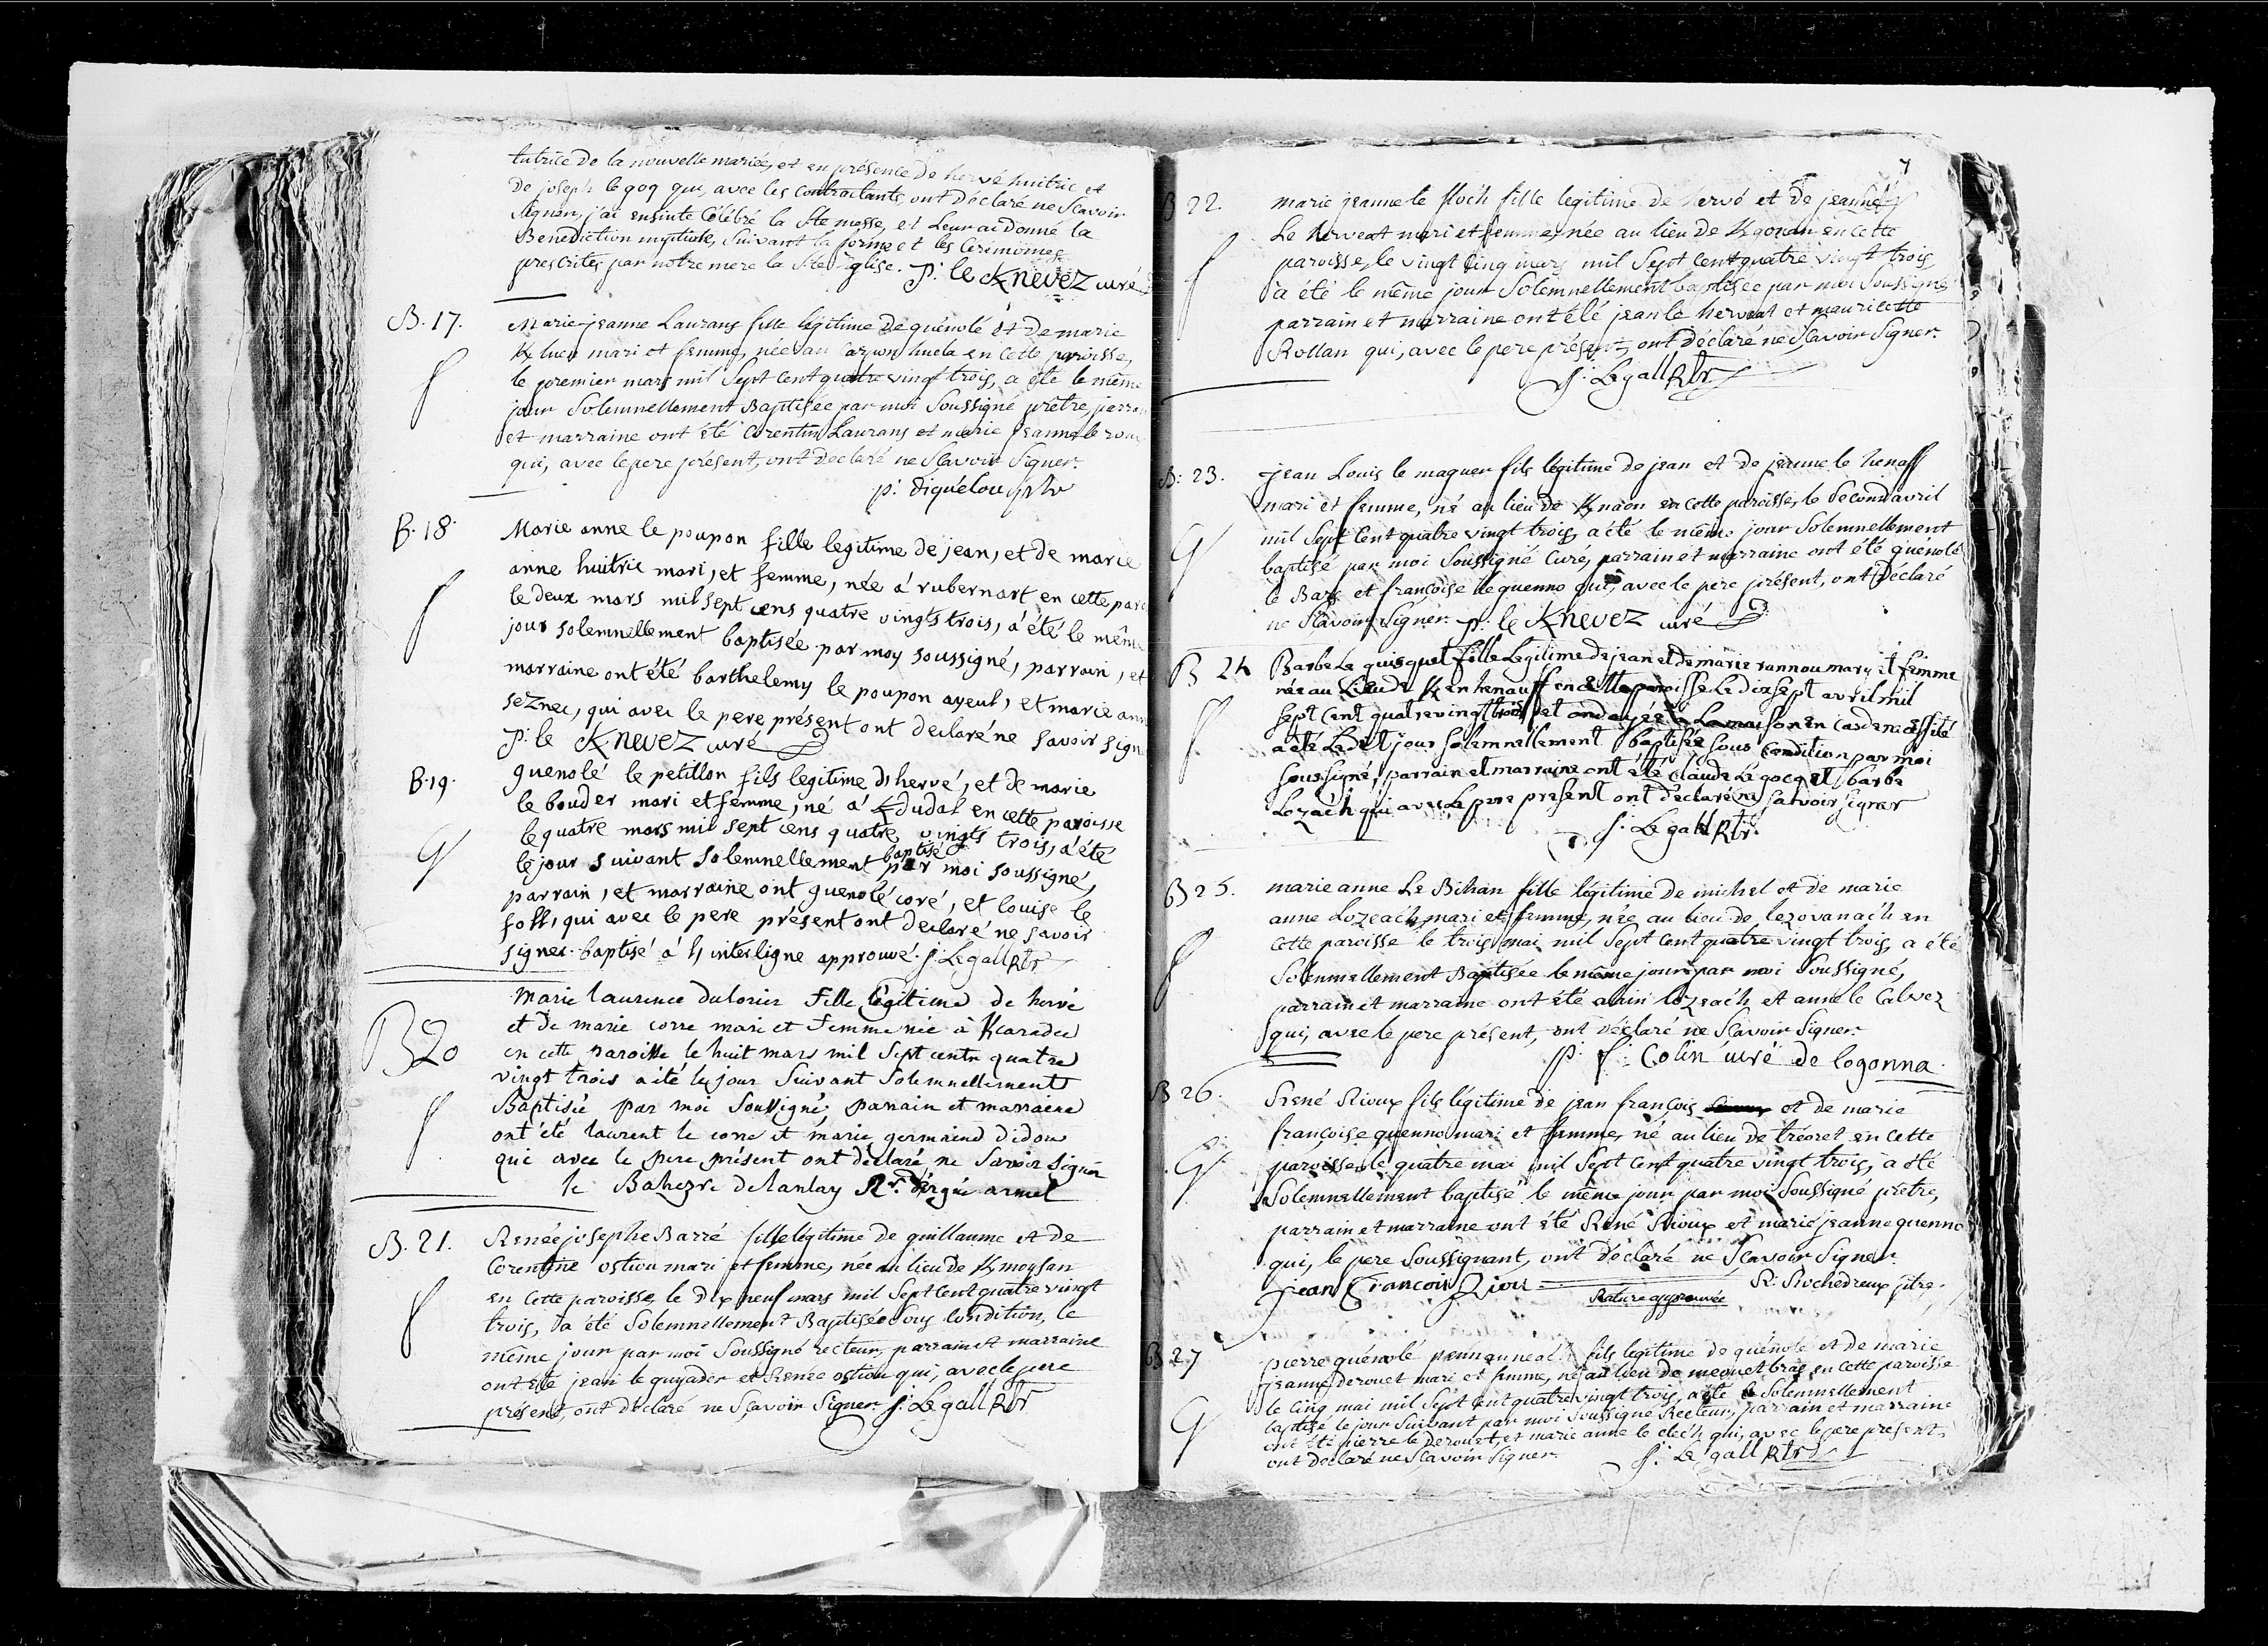 tutrice de la nouvelle mariée, et en présence de hervé huitric et
de joseph le goq qui, avec les contractants, ont déclaré ne Scavoir
Signer, j'ai ensuite Célébré la Ste messe, et Leur ai donné la
Benediction nuptiale, Suivant la forme et les Cérémonies
prescrites par notre mere la Ste Eglise. p: le Knevez curé
B. 17. Marie jeanne Laurans fille légitime de guénolé et de marie
mari et femme, née au huela en cette paroisse,
le premier mars mil Sept Cent quatre vingt trois, a été le même
jour Solemnellement Baptisée par moi Soussigné prêtre, parra
et marraine ont été Corentin Laurans et marie jeanne le rou
qui, avec le pere présent, ont déclaré ne Scavoir Signer.
p: diquélou ptre
B. 18. Marie anne le poupon fille legitime de jean, et de marie
anne huitric mari, et femme, née à rubernart en cette paro
le deux mars mil sept cens quatre vingts trois, a été le même
jour solemnellement baptisée par moy soussigné, parrain, et
marraine ont été barthelemy le poupon ayeul, et marie ann
seznec, qui avec le pere présent ont declaré ne savoir sign
p: le Knevez curé
B. 19. guenolé le petillon fils legitime d'hervé, et de marie
le bouder mari et femme, né à Kdudal en cette paroisse
le quatre mars mil sept cens quatre vingts trois, a été
le jour suivant solemnellement baptisé par moi soussigné,
parrain, et marraine ont guenolé coré, et louise le
foll, qui avec le pere présent ont declaré ne savoir
signer. baptisé à l'interligne approuvé. j: Le gall Rtr
B 20 Marie laurence dulorier fille légitime de hervé
et de marie corre mari et femme née à Kcaradec
en cette paroisse le huit mars mil Sept cents quatre
vingt trois a été le jour Suivant Solemnellement
Baptisée par moi Soussigné; parrain et marraine
ont été laurent le corre et marie germaine didou
qui avec le pere présent ont declaré ne Savoir Signer
le Bahezre delanlay Rr. d'ergué armel
B. 21. Renée josephe Barré fille légitime de guillaume et de
Corentine ostiou mari et femme, née au lieu de Kmoysan
en Cette paroisse le dix neuf mars mil Sept Cent quatre vingt
trois, a été Solemnellement Baptisée Sous Condition, le
même jour par moi Soussigné recteur, parrain et marraine
ont été jean le guyader et Renée ostiou qui, avec le pere
présent, ont déclaré ne Scavoir Signer. j: Le gall Rtr
7
B 22. marie jeanne le floch fille legitime de hervé et de jeanne
Le herveat mari et femme, née au lieu de Kgouan en Cette
paroisse, le vingt Cinq mars mil Sept Cent quatre vingt trois
a été le même jour Solemnellement baptisée par moi Soussigné
parrain et marraine ont été jean le herveat et mauricette
Rollan qui, avec le pere présent, ont déclaré ne Scavoir Signer.
j: Le gall Rtr
B: 23. jean Louis le maguer fils légitime de jean et de jeanne le henaff
mari et femme, né au lieu de Knaon en cette paroisse, le Second avril
mil Sept Cent quatre vingt trois, a été le même jour Solemnellement
baptisé par moi Soussigné Curé, parrain et marraine ont été guénolé
le Bars et françoise le guenno qui, avec le pere présent, ont Déclaré
ne Scavoir Signer. p: le Knevez curé
B 24 Barbe Le quisquet fille Legitime de jean et de marie rannou mary et femme
née au Lieu de Kenhenauff en cette paroisse Le dix sept avril mil
Sept Cent quatre vingt trois et ondoyée à La maison en cas de necessité
a été Le dit jour solemnellement baptisée sous condition par moi
soussigné, parrain et marraine ont été claude Le gocq et barbe
Lozach qui avec Le pere present ont declaré ne sabvoir signer
j: Le gall Rtr
B 25. marie anne Le Bihan fille légitime de michel et de marie
anne Lozeac'h mari et femme, née au lieu de lezovanac'h en
Cette paroisse le trois mai mil Sept Cent quatre vingt trois, a été
Solemnellement Baptisée le même jour par moi Soussigné,
parrain et marraine ont été alain lozeac'h et anne le Calvez
qui, avec le pere présent, ont déclaré ne Scavoir Signer.
p: f: Colin curé de logonna.
B 26. René Rioux fils légitime de jean françois et de marie
françoise quenno mari et femme, né au lieu de tréoret en cette
paroisse le quatre mai mil Sept Cent quatre vingt trois, a été
Solemnellement baptisé le même jour par moi Soussigné prêtre,
parrain et marraine ont été René Rioux et marie jeanne quenno
qui, le pere Soussignant, ont déclaré ne Scavoir Signer.
jean François Riou Rature approuvée R: Rochedreux ptre.
B 27 pierre guénolé pennanneac'h fils legitime de guénolé et de marie
jeanne derouet mari et femme, né au lieu de menet bras en Cette paroisse
le Cinq mai mil Sept Cent quatre vingt trois, a été Solemnellement
baptisé le jour Suivant par moi Soussigné Recteur, parrain et marraine
ont été pierre le Derouet, et marie anne le clec'h qui, avec le pere présent,
ont déclaré ne Scavoir Signer. j: Le gall Rtr